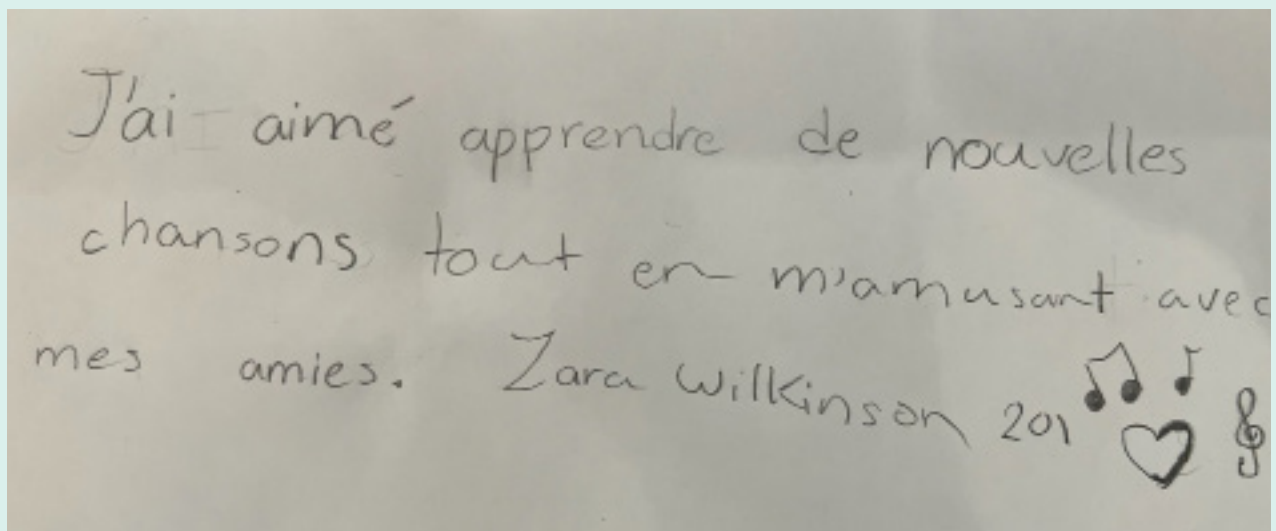 J'ai aimé apprendre de nouvelles
chansons tout en m'amusant avec
mes amies. Zara Wilkinson 201